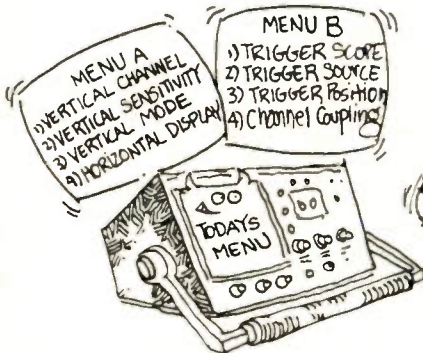 MENU A
1) VERTICAL CHANNEL
2) VERTICAL SENSITIVITY
3) VERTICAL MODE
4) HORIZONTAL DISPLAY
MENU B
1) TRIGGER SCOPE
2) TRIGGER SOURCE
3) TRIGGER POSITION
4) Channel Coupling
TODAYS
MENU